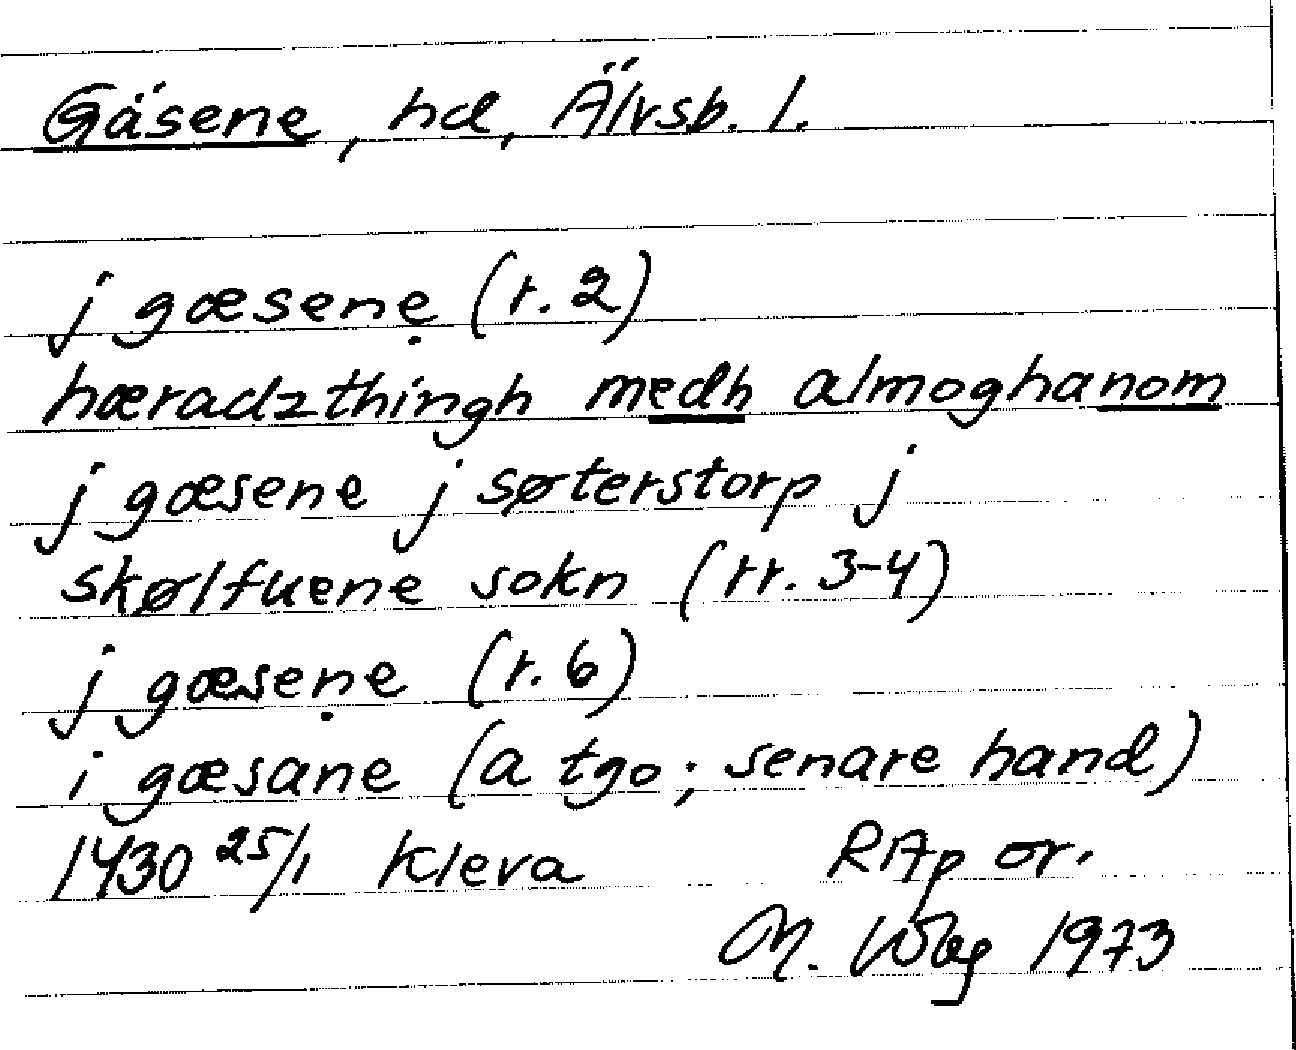 Gäsene, hd, Älvsb. l.
j gæsenẹ (r. 2)
hæradzthingh medh almoghanom
j gæsene j søterstorp j
skølfuene sokn (rr. 3-4)
j gæseṇe (r. 6)
i gæsane (a tgo; senare hand)
1430 25/1 Kleva RAp or.
M. Wbg 1973